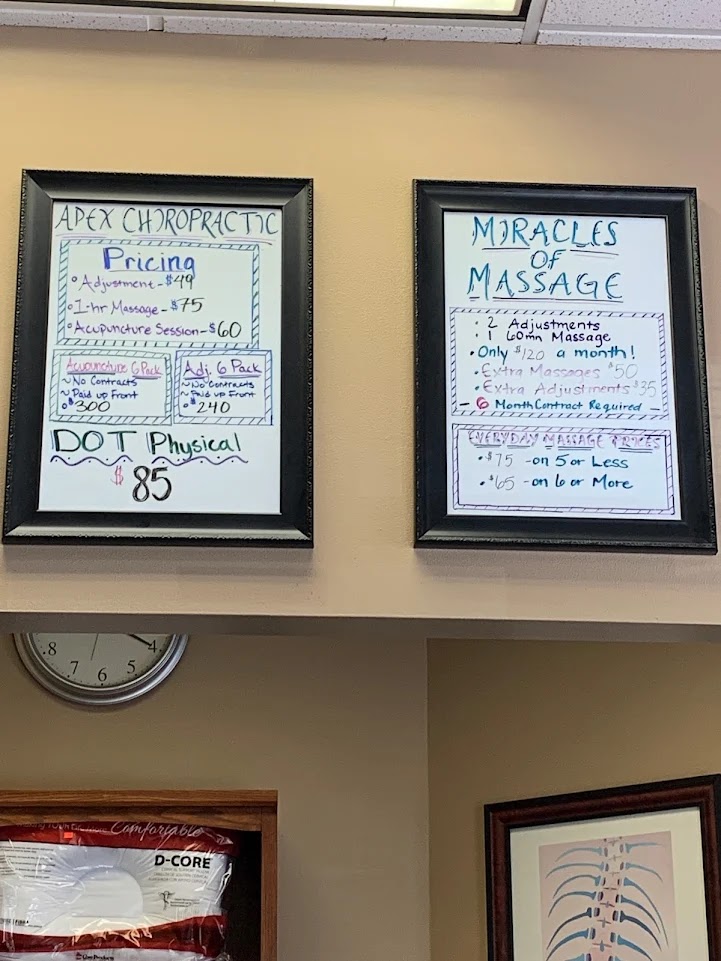 APEX CHIROPRACTIC
Pricing
• Adjustment - $49
• 1-hr Massage - $75
• Acupuncture Session - $60
Acupuncture 6 Pack
~ No Contracts
~ Paid up Front
• $300
Adj. 6 Pack
~ No Contracts
~ Paid up Front
• $240
DOT Physical
$85
MIRACLES
OF
MASSAGE
• 2 Adjustments
• 1 60mn Massage
• Only $120 a month!
• Extra Massages $50
• Extra Adjustments $35
- 6 Month Contract Required -
EVERYDAY MASSAGE PRICES
• $75 - on 5 or Less
• $65 - on 6 or More
8
7
6
5
4
Comfortable
D-CORE